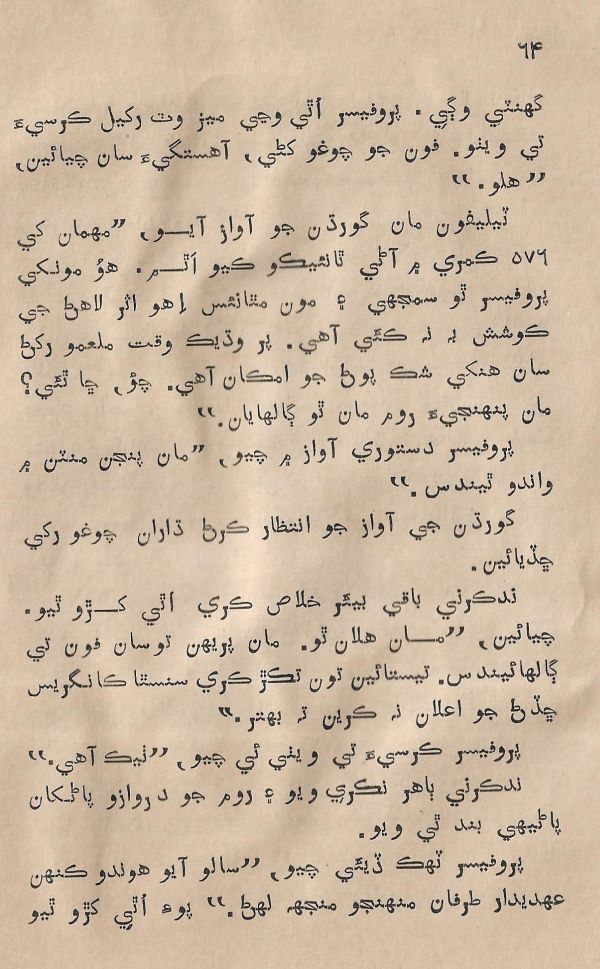 ٦۴
گهنٽي وڳي. پروفيسر اُٿي وڃي ميز وٽ رکيل ڪرسيءَ
تي ويٺو. فون جو چوغو کڻي, آهستگيءَ سان چيائين,
”هلو.“
ٽيليفون مان گورڌن جو آواز آيـــو, ”مهمان کي
٥٧٦ ڪمري ۾ آڻي ٽانئيڪو ڪيو اٿـــم. هوُ مونکي
پروفيسر ٿو سمجهي ۽ مون مٿانئس اِهو اثر لاهڻ جي
ڪوشش بہ نہ ڪئي آهي. پر وڌيڪ وقت ملعمو رکڻ
سان هنکي شڪ پوڻ جو امڪان آهي. چؤ, ڇا ٿئي؟
مان پنهنجيءَ روم مان ٿو ڳالهايان.“
پروفيسر دستوري آواز ۾ چيو, ”مان پنجن منٽن ۾
واندو ٿيندس.“
گورڌن جي آواز جو انتظار ڪرڻ ڌاران چوغو رکي
ڇڏيائين.
ندڪرني باقي بيئر خلاص ڪري اٿي کـــڙو ٿيو.
چيائين, ”مـــان هلان ٿو. مان پريهن توسان فون تي
ڳالهائيندس. تيستائين تون تڪڙ ڪري سنسٿا ڪانگريس
ڇڏڻ جو اعلان نہ ڪرين تہ بهتر.“
پروفيسر ڪرسيءَ تي ويٺي ئي چيو, ”ٺيڪ آهي.“
ندڪرني ٻاهر نڪري ويو ۽ روم جو دروازو پاڻڪان
پاڻيهي بند ٿي ويو.
پروفيسر ٽهڪ ڏيئي چيو, ”سالو آيو هوندو ڪنهن
عهديدار طرفان منهنجو منجهہ لهڻ.“ پوءِ اُٿي کڙو ٿيو